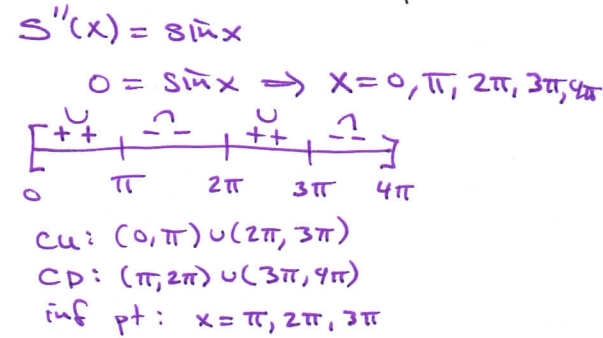 S''(x) = sin x
0 = sin x ⇒ x = 0, π, 2π, 3π, 4π
++ -- ++ --
0 π 2π 3π 4π
CU: (0, π) ∪ (2π, 3π)
CD: (π, 2π) ∪ (3π, 4π)
inf pt: x = π, 2π, 3π